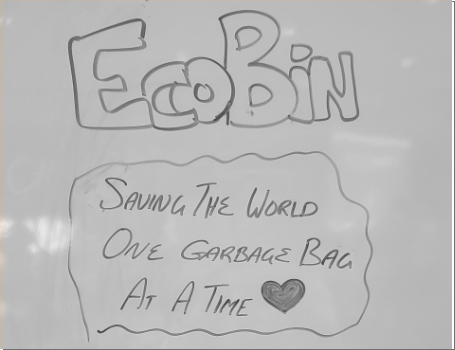 EcoBin
Saving The World
One Garbage Bag
At A Time